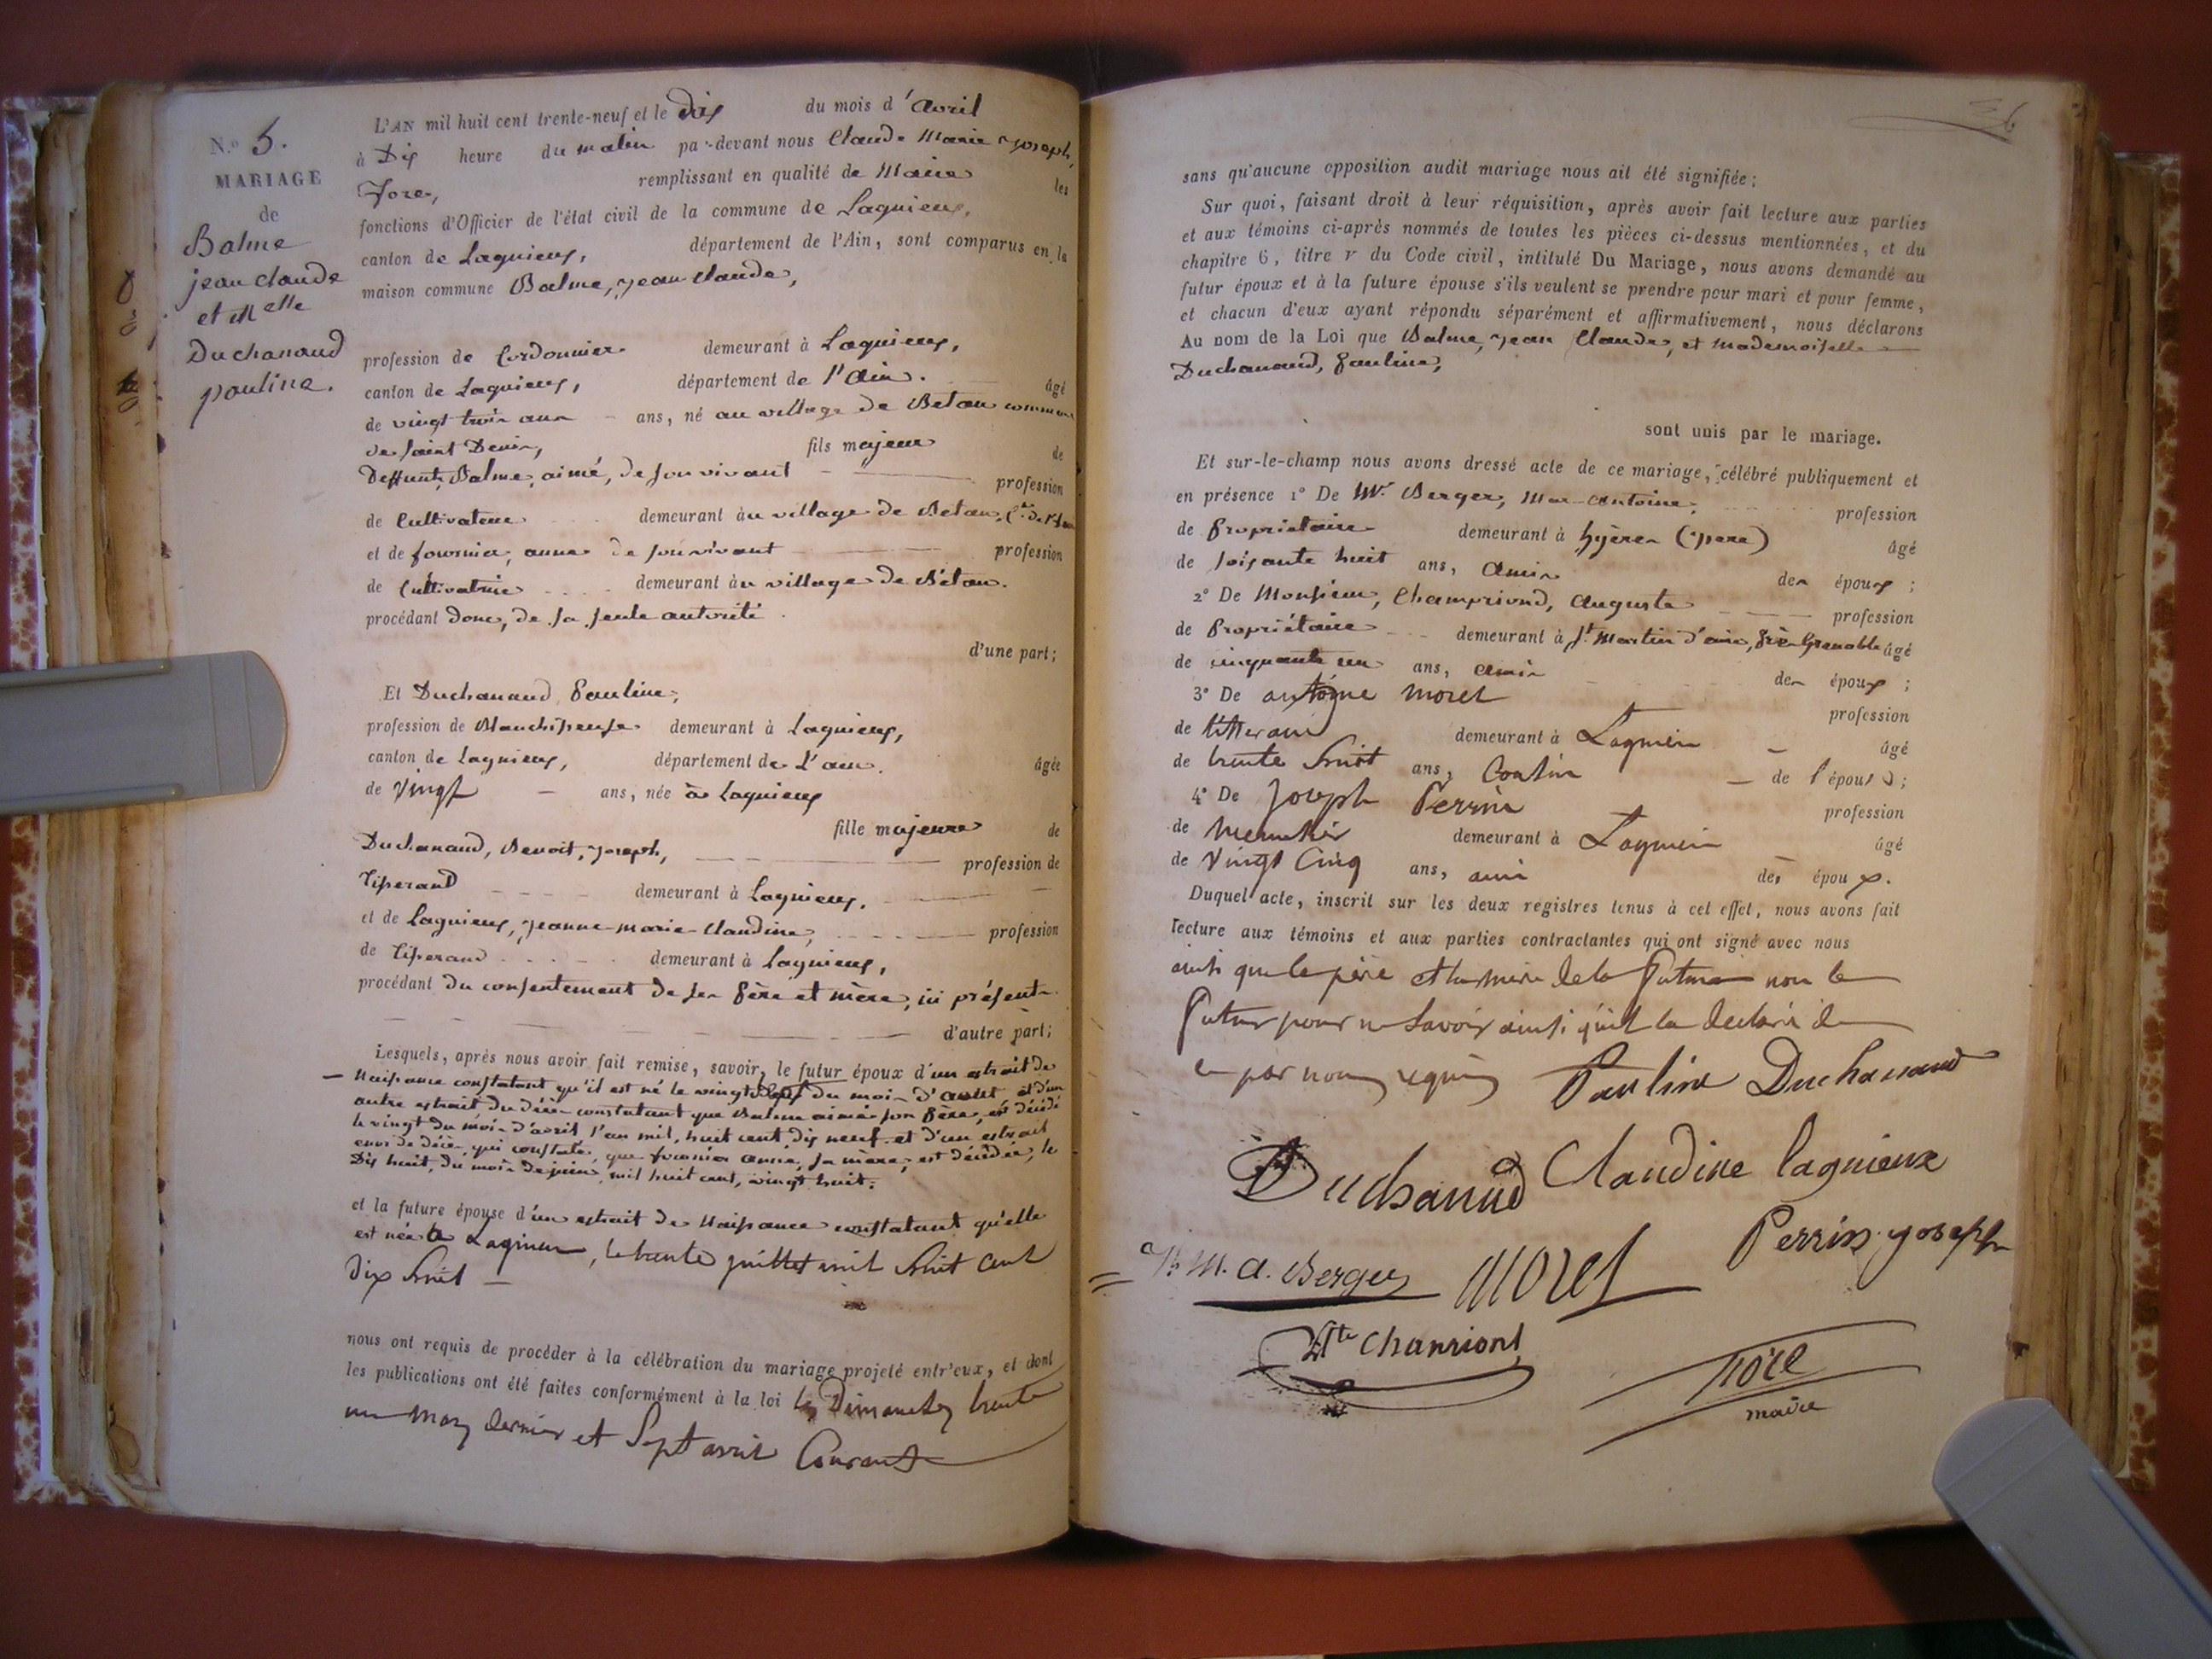 N.º 5.
MARIAGE
de
Balme
jean claude
et Melle
Duchanaud
pauline.
L'AN mil huit cent trente-neuf et le dix du mois d'avril
à Dix heure du matin par-devant nous Claude Marie Joseph,
remplissant en qualité de Maire les
fonctions d'Officier de l'état civil de la commune de Lagnieux,
canton de Lagnieux, département de l'Ain, sont comparus en la
maison commune Balme, jean claude,
profession de Cordonnier demeurant à Lagnieux,
canton de Lagnieux, département de l'Ain. âgé
de vingt trois ans ans, né au village de Betan commune
de saint Denis, fils majeur de
Deffunts Balme, aimé, de son vivant profession
de Cultivateur demeurant au village de Betan,
et de fournier, anne de son vivant profession
de Cultivatrice demeurant au village de Bétan.
procédant donc, de sa seule autorité.
d'une part;
Et Duchanaud Pauline,
profession de Blanchisseuse demeurant à Lagnieux,
canton de Lagnieux, département de L'ain. âgée
de Vingt ans, née à Lagnieux
fille majeure de
Duchanaud, Benoit, joseph, profession de
Tisserand demeurant à Lagnieux.
et de Lagnieux, jeanne-marie-claudine, profession
de Tisserand demeurant à Lagnieux,
procédant du consentement de ses père et mère, ici présents
d'autre part;
Lesquels, après nous avoir fait remise, savoir, le futur époux d'un extrait de
Naissance constatant qu'il est né le vingt du mois d'aout et d'un
autre extrait du décès constatant que Balme aimé son père, est décédé
le vingt du mois d'avril l'an mil, huit cent, dix neuf et d'un extrait
de décès, qui constate, que fournier anne, sa mère, est décédée, le
Dix huit, du mois de juin, mil huit cent, vingt huit.
et la future épouse d'un extrait de Naissance constatant qu'elle
est née à Lagnieux, le trente juillet mil huit cent
dix huit
nous ont requis de procéder à la célébration du mariage projeté entr'eux, et dont
les publications ont été faites conformément à la loi les Dimanches trente
un Mars dernier et Sept avril Courant
36
sans qu'aucune opposition audit mariage nous ait été signifiée;
Sur quoi, faisant droit à leur réquisition, après avoir fait lecture aux parties
et aux témoins ci-après nommés de toutes les pièces ci-dessus mentionnées, et du
chapitre 6, titre v du Code civil, intitulé Du Mariage, nous avons demandé au
futur époux et à la future épouse s'ils veulent se prendre pour mari et pour femme,
et chacun d'eux ayant répondu séparément et affirmativement, nous déclarons
Au nom de la Loi que Balme, jean Claude, et Mademoiselle
Duchanaud, Pauline,
sont unis par le mariage.
Et sur-le-champ nous avons dressé acte de ce mariage, célébré publiquement et
en présence 1º De Mr. Berger, Mar-Antoine, profession
de Propriétaire demeurant à hyères âgé
de soixante huit ans, Amis des époux;
2º De Monsieur, Champriond, Auguste profession
de Propriétaire demeurant à St. Martin d' près Grenoble âgé
de cinquante un ans, Amis des époux;
3º De antoine Moret profession
de demeurant à Lagnieu âgé
de trente huit ans, Cousin de l'épouse;
4º De Joseph Perrin profession
de Menuisier demeurant à Lagnieu âgé
de Vingt Cinq ans, ami des époux.
Duquel acte, inscrit sur les deux registres tenus à cet effet, nous avons fait
lecture aux témoins et aux parties contractantes qui ont signé avec nous
ainsi que le père et la mère de la Future non le
Futur pour ne Savoir ainsi qu'il l'a déclaré de
ce par nous requis Pauline Duchanaud
Duchanaud Claudine lagnieux
M. a. Berger Moret Perrin joseph
Chanriont
maire